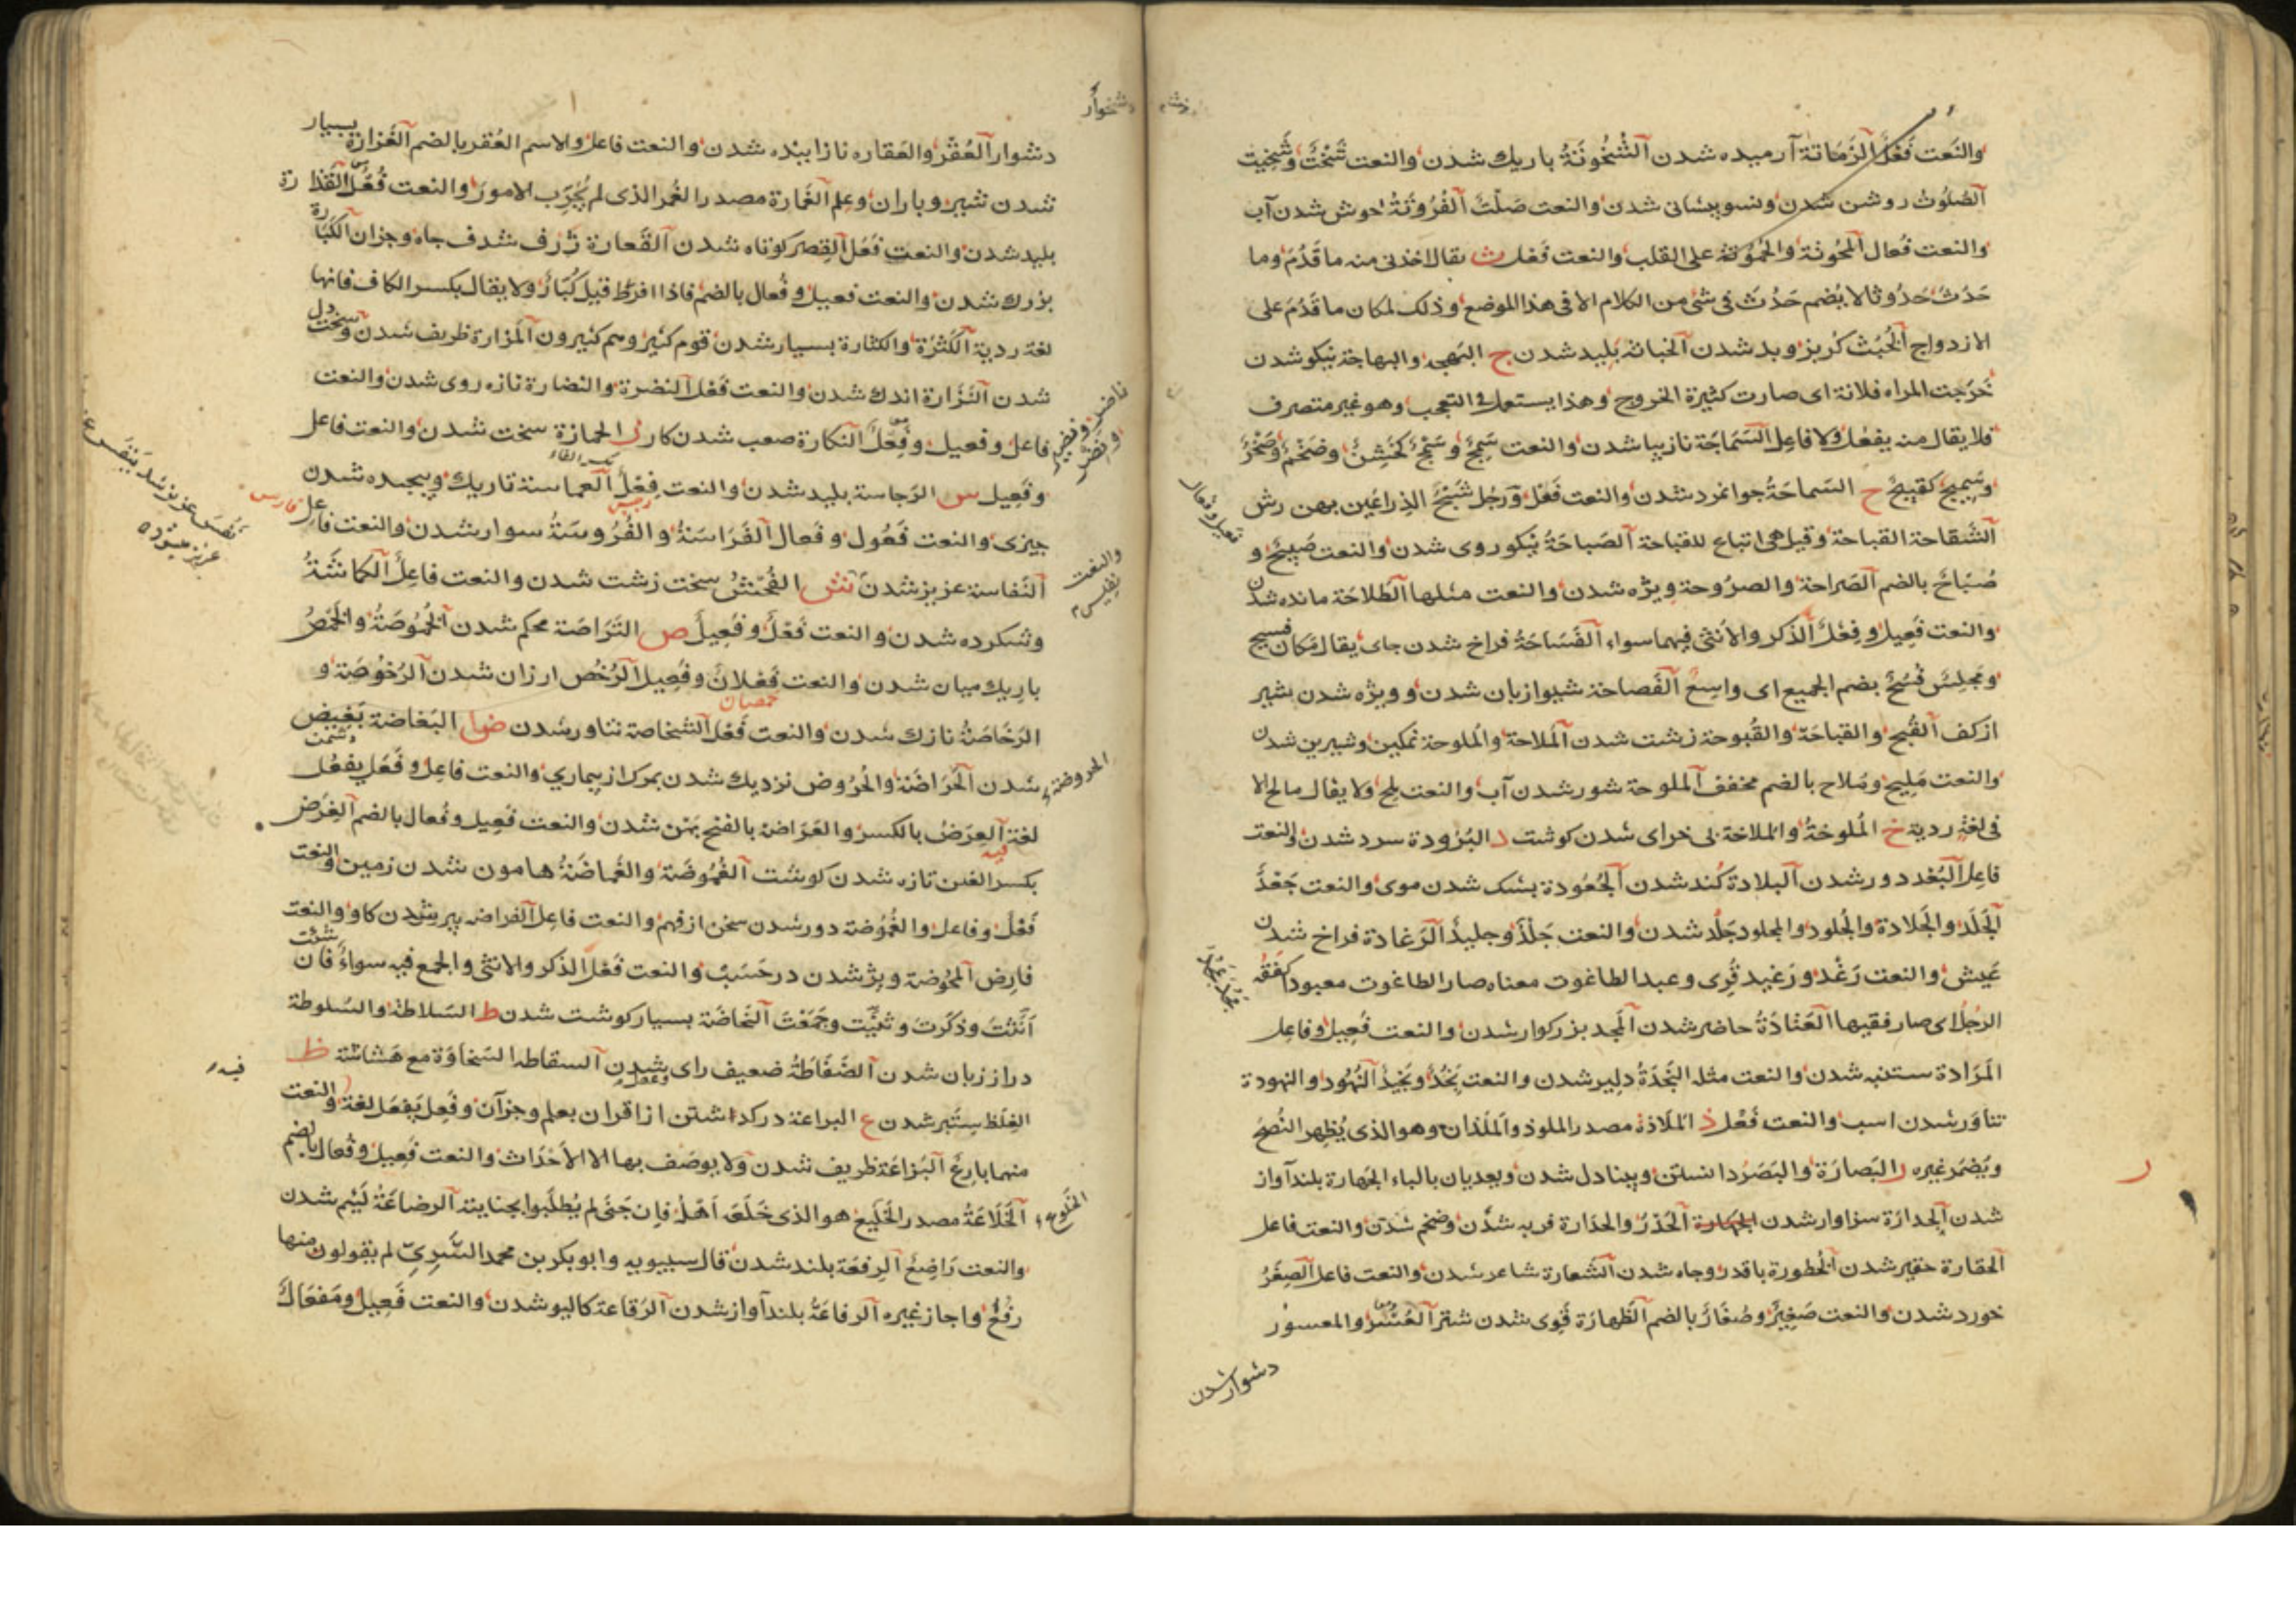 والنعت فَعْل الزَمَاتة آرمیده شدن الشُخُونَةُ باریك شدن والنعت شَخْتٌ وشَخِیت
الصُلُوتُ روشن شدن والنعت صَلْتٌ الفُرُوتَةُ خوش شدن آب
والنعت فُعال على القلب والنعت فَعْل ث یقال اخذنی منه ما قَدُمَ وما
حَدُثَ حُدُوثا لا یُضم حَدُثَ فی شئ من الكلام الا فی هذا الموضع وذلك لمكان ما قَدُمَ على
الازدواج الخُبْث كربز وبد شدن الخباثة پلید شدن ج البَهجة والبهاجة نیكو شدن
خَرُجت المراه فلانة ای صارت كثیرة الخروج وهذا یستعمل فی التعجب وهو غیر متصرف
فلا یقال منه یفعُل ولا فاعِل السَمَاجَة نازیبا شدن والنعت سَمِجٌ وسَمْجٌ كخَشِنٌ وضَخْمٌ
وسَمِیجٌ كقَبِیحٌ ح السَماحَةُ جوانمرد شدن والنعت فَعْل ورَجُل شَبْحُ الذِراعَین پهن رش
الشَقاحة القباحة وقیل هی اتباع للقباحة الصَباحَةُ نیكو روی شدن والنعت صَبِیحٌ و
صُبَاحٌ بالضم الصَراحة والصرُوحة ویژه شدن والنعت مثلها الطَلاحَة مانده شدن
والنعت فَعِیل وفِعْل الذَكر والاُنثى فیهما سواء الفَسَاحَةُ فراخ شدن جای یقال مَكان فسیح
ومَجلِس فُسُحٌ بضم الجمیع ای واسِعٌ الفَصاحة شیوازبان شدن وویژه شدن شیر
از كف القُبح والقباحَة والقُبوحة زشت شدن المَلاحة والمُلوحة نمكین وشیرین شدن
والنعت مَلِیح ومُلاح بالضم مخفف الملوحة شور شدن آب والنعت ملح ولا یقال مالح الا
فی لغة ردیة خ المُلوخةُ والملاخة بی خرای شدن كوشت د البُرُودة سرد شدن والنعت
فاعِل البُعْد دور شدن البلادة كُند شدن الجُعُودة بشك شدن موی والنعت جَعْدٌ
الجَلَد والجَلادة والجُلود والمجلود جَلْد شدن والنعت جَلْدٌ وجلیدٌ الرَغادة فراخ شدن
عَیش والنعت رَغْد ورَغید قُرِی وعبد الطاغوت معناه صار الطاغوت معبودا كفَقُه
الرجُل ای صار فقیها العَتَادَةُ حاضر شدن المَجد بزركوار شدن والنعت فَعِیل وفاعِل
المَرَادة ستنبه شدن والنعت مثله النَجْدَةُ دلیر شدن والنعت نَجُدٌ ونَجِیدٌ النُهُود والنهودة
تناوَر شدن اسب والنعت فَعْل ذ المَلَاذة مصدر الملوذ والمَلَذان وهو الذی یُظهِر النُصحَ
ویُضمَر غیره ر البَصارَة والبَصَر دانستن وبینادل شدن ویعدیان بالباء الجَهارة بلند آواز
شدن الجَدارَة سزاوار شدن الحَدْرُ والحدَارة فربه شدن وضخم شدن والنعت فاعل
الحَقارة حقیر شدن الخُطورة باقدر وجاه شدن الشَعارة شاعر شدن والنعت فاعل الصِغَرُ
خورد شدن والنعت صَغِیرٌ وصُغَارٌ بالضم الظَهارَة قَوِی شدن شتر العُسْرُ والمعسور
دشوار شدن
دشوار العُقْر والعَقاره نازاینده شدن والنعت فاعل والاسم العُقر بالضم الغَزارة بسیار
شدن شیر وباران وعِلم الغَمارة مصدر الغُمر الذی لم یُجَرِّب الامورَ والنعت فُعْل القَذارة
پلید شدن والنعت فَعْل القِصَر كوتاه شدن القَعارة ژرف شدن چاه وجزان الكَبَارة
بزرك شدن والنعت فعیل وفُعال بالضم فاذا افرَط قیل كُبَّار ولا یقال بكسر الكاف فانها
لغة ردیة الكَثْرَة والكثارة بسیار شدن قوم كثیر وهم كثیرون المَزارة ظریف شدن وسخت دل
شدن النَزَارة اندك شدن والنعت فَعْل النضرة والنضارة تازه روی شدن والنعت
فاعل وفعیل وفَعِلٌ النَكارة صعب شدن كار ز الحمازة سخت شدن والنعت فاعل
وفَعِیل س الرَجاسة پلید شدن والنعت فِعْلٌ العماسة تاریك وپیچیده شدن
چیزی والنعت فَعُول وفَعال الفَرَاسَةُ والفُرُوسَةُ سوار شدن والنعت فاعِل
النَفاسة عزیز شدن ش الفُحْشُ سخت زشت شدن والنعت فاعِلٌ الكَماشَةُ
وشكرده شدن والنعت فَعْلٌ وفَعِیلٌ ص التَرَاصَة محكم شدن الخُمُوصَةُ والخُمْصُ
باریك میان شدن والنعت فَعْلانٌ وفَعِیل الرُخْص ارزان شدن الرُخُوصَة و
الرَخَاصَةُ نازك شدن والنعت فَعْل الشَخاصة تناور شدن ض البَغاضة بَغِیض
شدن الحَرَاضَة والحُرُوض نزدیك شدن بمرك از بیماری والنعت فاعِل وفَعَل یفعُل
لغة فیه العِرَضُ بالكسر والعَرَاضة بالفتح پَهْن شدن والنعت فَعِیل وفُعال بالضم الغِرَض
بكسر الغین تازه شدن كوشت الغُمُوضَة والغَمَاضَةُ هامون شدن زمین والنعت
فَعْلٌ وفاعل والغُمُوضة دور شدن سخن از فهم والنعت فاعل الفراضة پیر شدن كاو والنعت
فارِض المُحُوضة ویژه شدن در حَسَبْ والنعت فَعْل الذكر والانثى والجمع فیه سواءٌ فان شئت
اَنَّثْتَ وذكّرت وثنّیت وجَمَعْتَ النَحَاضَة بسیار كوشت شدن ط السَلاطة والسُلوطة
دراز زبان شدن الضَفَاطَةُ ضعیف رای شدن السقاطه السَخاوَة مع هَشاشَة ظ
الغِلَظ سِتَبر شدن ع البراعة دركذاشتن از اقران بعلم وجزآن وفَعِل یفعَل لغة والنعت
منهما بارِعٌ البَزاعَة ظریف شدن ولا یوصَف بها الا الاَحْدَاث والنعت فَعِیل وفُعال بالضم
الخَلَاعَةُ مصدر الخَلِیع هو الذی خَلَعَه اَهْلُه فإن جَنَى لم یُطلَبوا بجنایته الرضاعَةُ لَئیم شدن
والنعت رَاضِعٌ الرِفعَة بلند شدن قال سیبویه وابوبكر بن محمد السَّرِیّ لم یقولوا منها
رَفُعَ واجاز غیره الرفاعَةُ بلند آواز شدن الرَقاعة كالیو شدن والنعت فَعِیل ومَفعَال